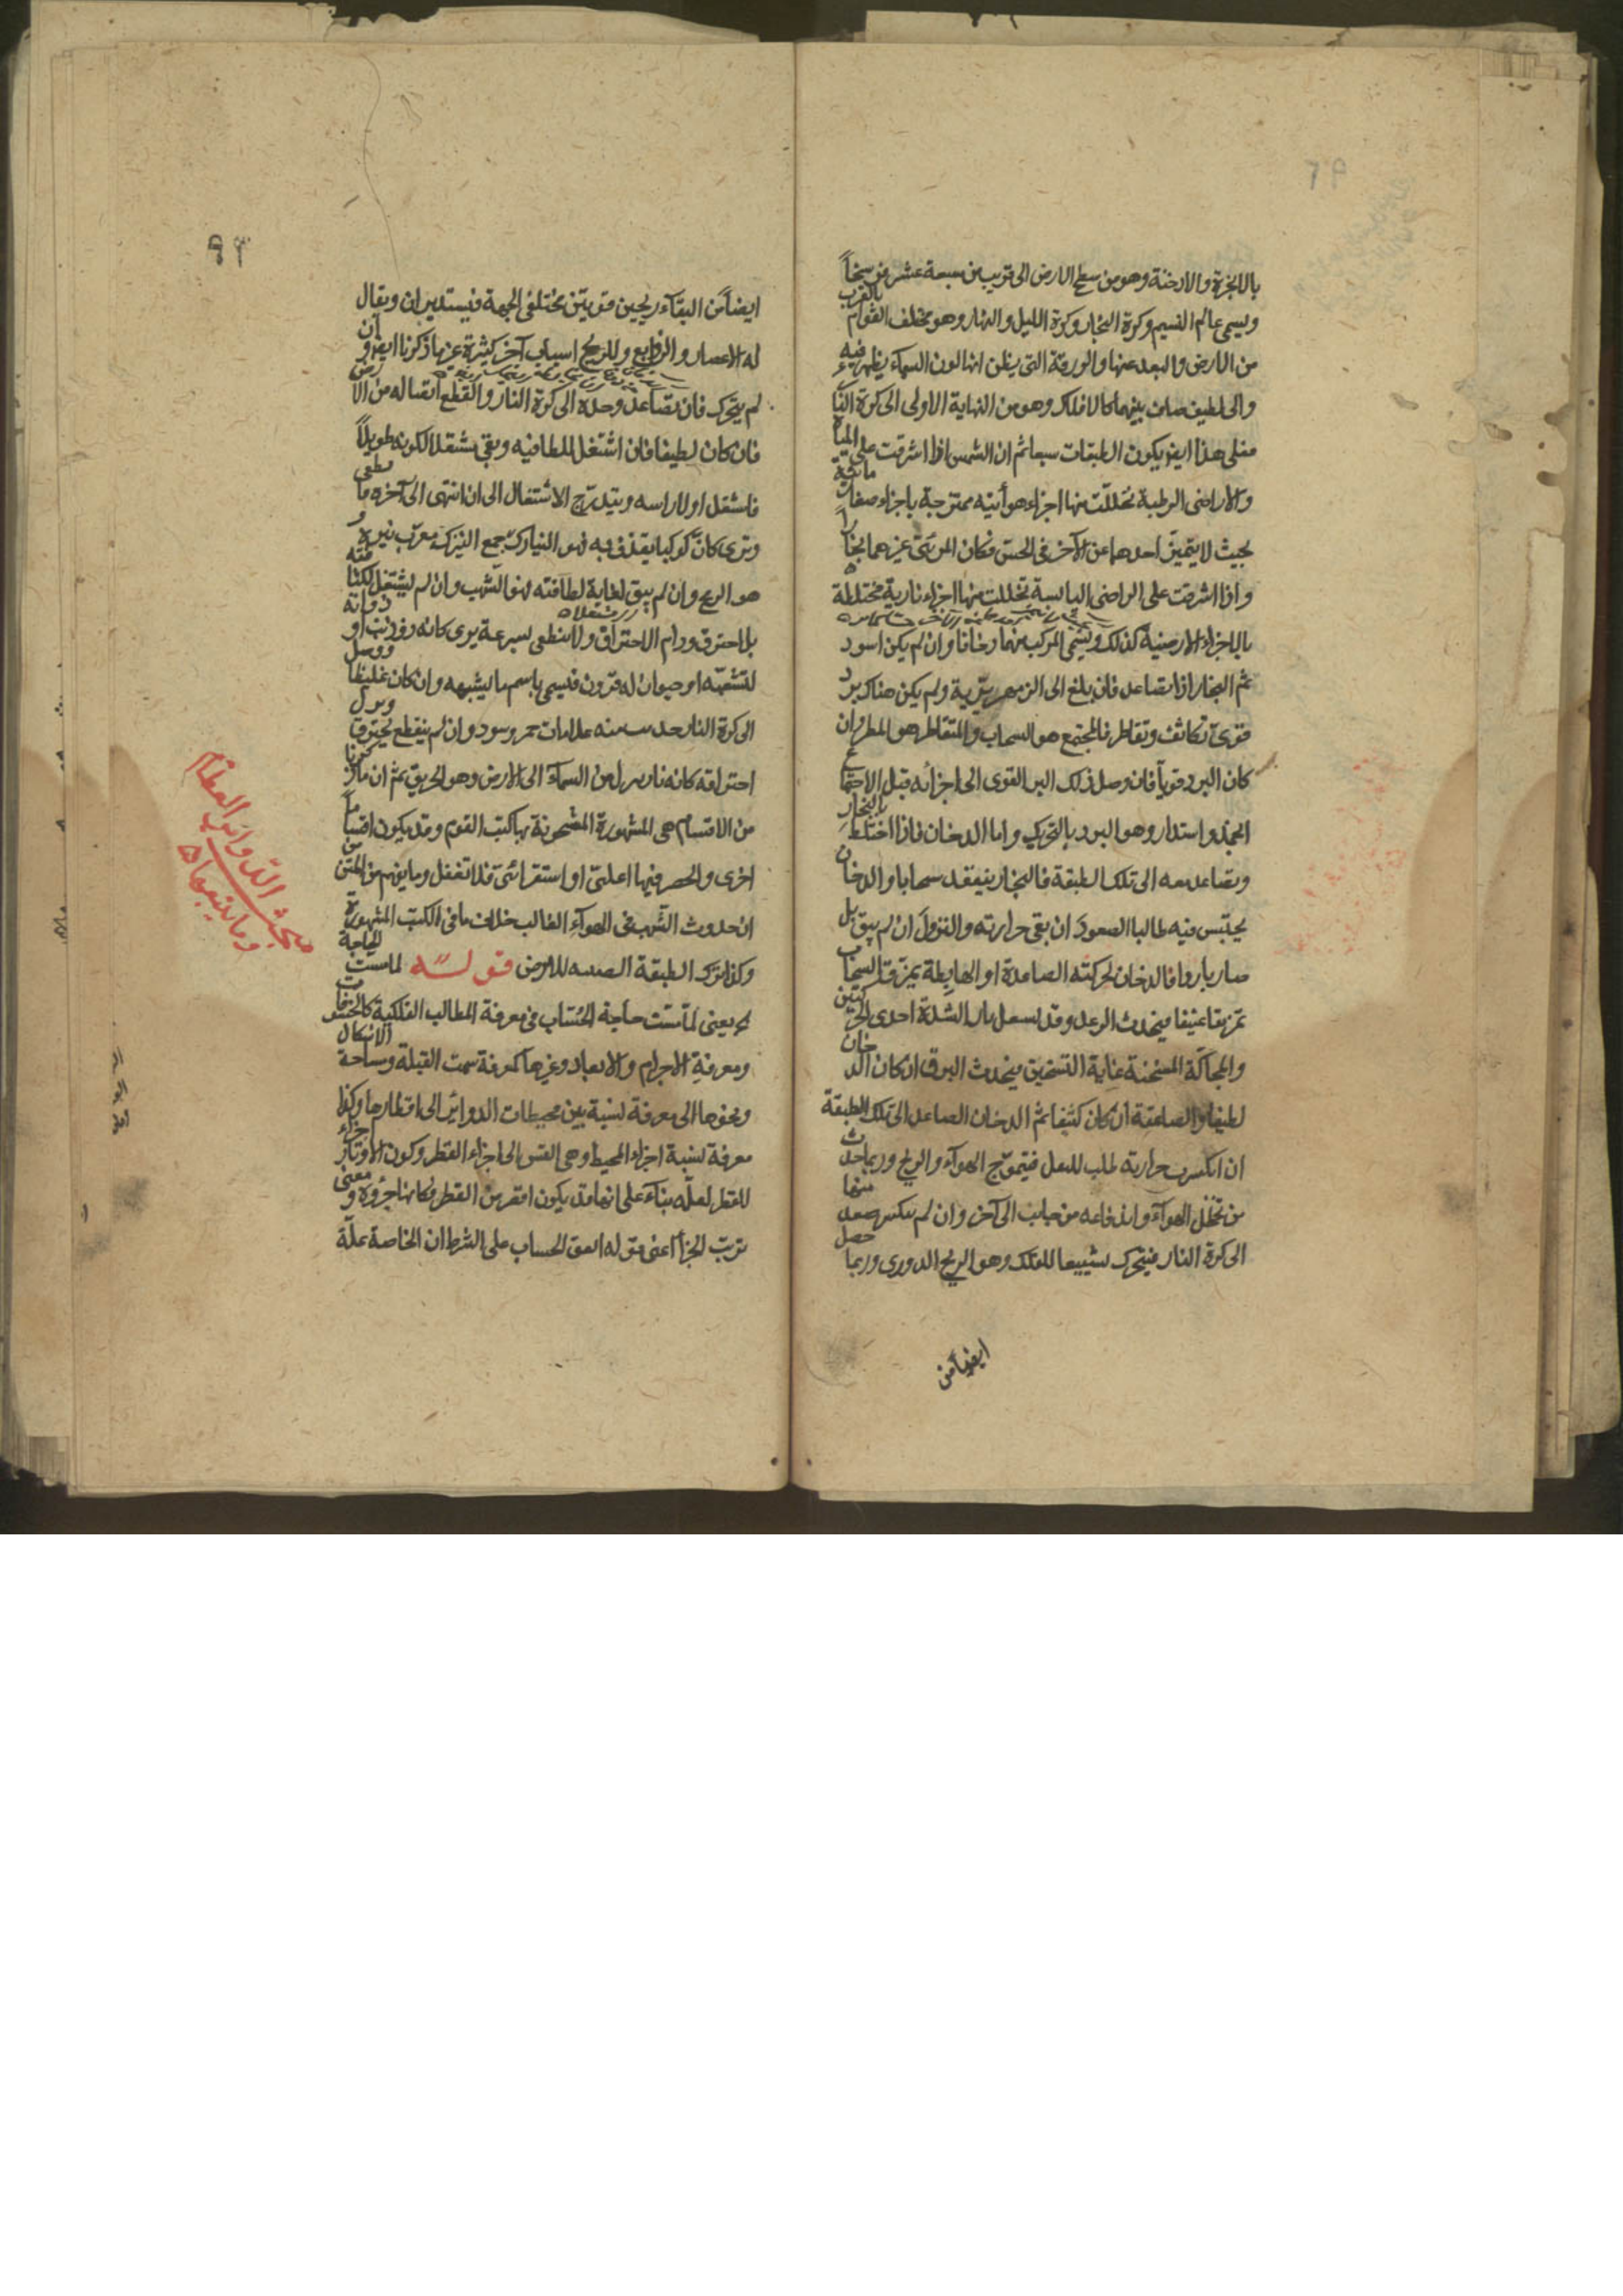 بالابخرة والادخنة وهو من سطح الارض الى قريب من سبعة عشر فرسخاً
ويسمى عالم النسيم وكرة البخار وكرة الليل والنهار وهو مختلف القوام بالقرب
من الارض والبعد عنها والزرقة التى يظن انها لون السماء يظهر فيه
والى لطيف صاف بينهما كالافلاك وهو من النهاية الاولى الى كرة النار
فعلى هذا ايضا يكون الطبقات سبعا ثم ان الشمس اذا اشرقت على المياه
والاراضى الرطبة تحللت منها اجزاء هوائية ممتزجة باجزاء صغار مائية
بحيث لا يتميز احدهما عن الآخر فى الحس فكان المرئى غيرهما بخارا
واذا اشرقت على الراضى اليابسة تحللت منها اجزاء نارية مختلطة
بالاجزاء الارضية كذلك ويسمى المركب منهما دخانا وان لم يكن اسود
ثم البخار اذا تصاعد فان بلغ الى الزمهريرية ولم يكن هناك برد
قوى تكاثف وتقاطر فالمجتمع هو السحاب والمتقاطر هو المطر وان
كان البرد قويا فان وصل ذلك البرد القوى الى اجزائه قبل الاجتماع
انجمد واستدار وهو البرد بالتحريك واما الدخان فاذا اختلط بالبخار
وتصاعد معه الى تلك الطبقة فالبخار ينعقد سحابا والدخان
يحتبس فيه طالبا الصعود ان بقى حرارته والنزول ان لم يبق بل
صار باردا فالدخان لحركته الصاعدة او الهابطة يمزق السحاب
تمزيقا عنيفا فيحدث الرعد وقد يستعمل بالشدة احدى الحركتين
والمحاكة المسخنة غاية التسخين فيحدث البرق ان كان الدخان
لطيفا والصاعقة ان كان كثيفا ثم الدخان الصاعد الى تلك الطبقة
ان انكسرت حرارته طلب للسفل فيتموج الهواء والريح وربما حدث
من تخلل الهواء واندفاعه من جانب الى آخر وان لم ينكسر صعد
الى كرة النار فيتحرك تشييعا للفلك وهو الريح الدورى وربما حصل
ايضاً من
٩٣
ايضاً من التقاء ريحين قويتين مختلفى الجهة فيستديران ويقال
له الاعصار والزوابع وللريح اسباب آخر كثيرة غير ما ذكرنا ايضا وان
لم يتحرك فان تصاعد وحده الى كرة النار وانقطع اتصاله من الارض
فان كان لطيفا فان اشتعل للطافته وبقى مشتعلا لكونه طويلاً
فاشتعل اولا راسه ويتدرج الاشتعال الى ان انتهى الى آخره ما
وترى كان كوكبا يقذف به فهو النيازك جمع النيزك معرب نيزه و
هو الرمح وان لم يبق لغاية لطافته فهو الشهب وان لم يشتعل لكثافته
بل احترق ودام الاحتراق ولا ينطفى بسرعة يرى كانه ذو ذنب او ذوابة
لتشبه او حيوان له قرون فيسمى باسم ما يشبهه وان كان غليظا ووصل
الى كرة النار حدث منه علامات حمر وسود وان لم ينقطع يحترق
احتراقه كانه نار ينزل من السماء الى الارض وهو الحريق ثم ان ما ذكرنا
من الاقسام هى المشهورة المشحونة بها كتب القوم وقد يكون اقساماً
اخرى والحصر فيها اغلبى او استقرائى فلا تغفل وما يفهم من المتن
ان حدوث الشهب فى الهواء الغالب خلاف ما فى الكتب المشهورة
وكذا ترك الطبقة للارض قوله لما مست الحاجة
يعنى لما مست حاجة الحساب فى معرفة المطالب الفلكية كالخسوفات
ومعرفة الاجرام والابعاد وغيرها كمعرفة سمت القبلة ومساحة الاشكال
ونحوها الى معرفة نسبة بين محيطات الدوائر الى اقطارها وكذا
معرفة نسبة اجزاء المحيط وهى القسى الى اجزاء القطر وكون الاوتار
للقطر لعله بناء على انها قد يكون اقصر من القطر فكانها جزؤه ومعنى
ترتب الجزأ اعنى قوله اتفق الحساب على الشرط ان الخاصة علة
مبحث الدوائر العظام
وما يتبعها